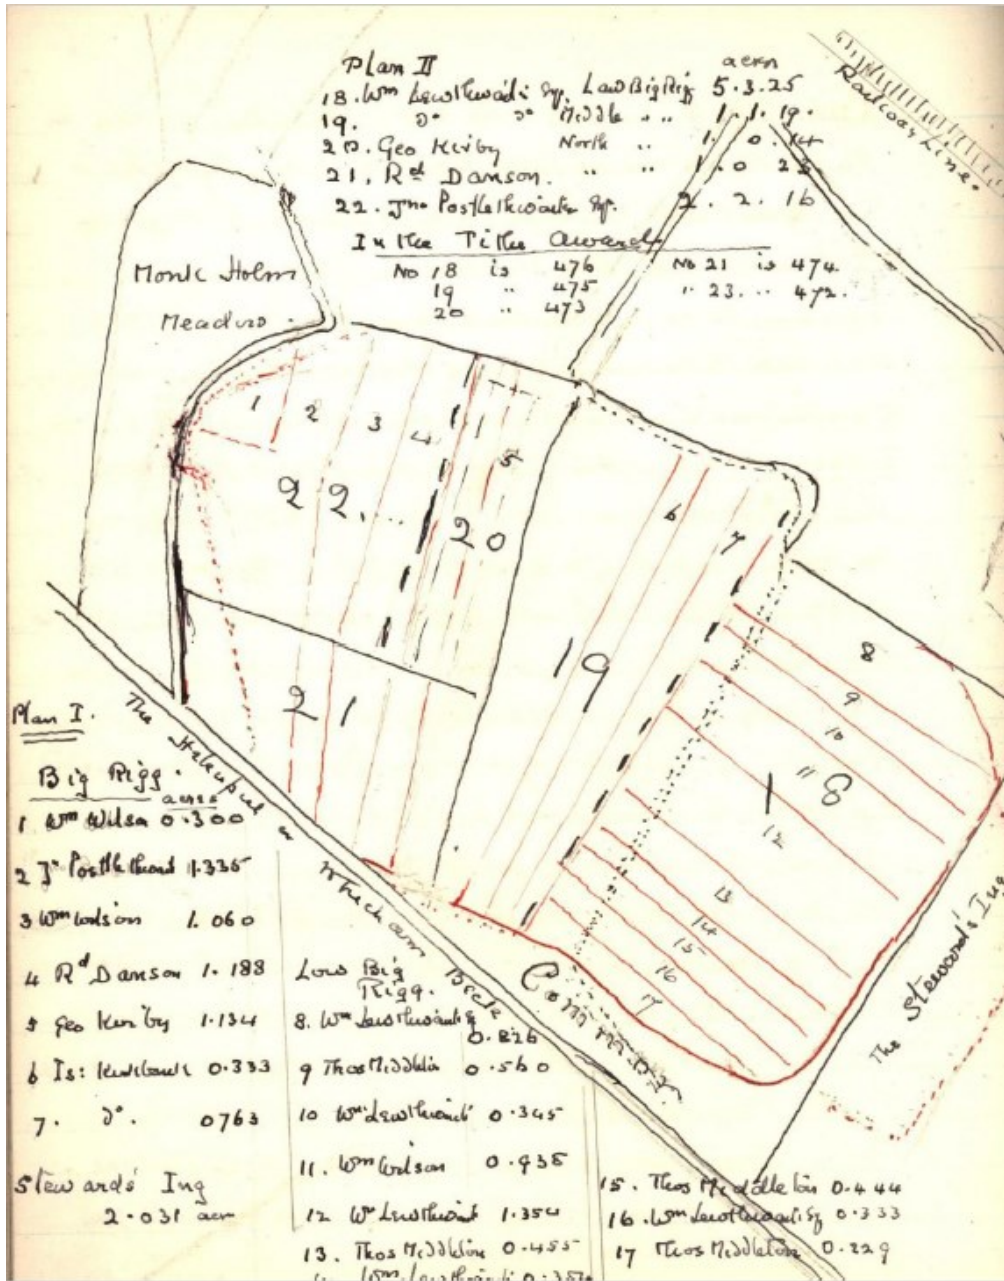 Plan II
acres
18. Wm Lewthwaite Esq. Low Big Rig 5.3.25
19. Do Do Middle " " 1.1.19.
20. Geo Kirby North " 1.0.14
21. Rd Danson. " " 1.0.23
22. Jno Postlethwaite Esq. 2.2.16
In the Tithe Award
No 18 is 476 No 21 is 474.
19 " 475 " 23. " 472.
20 " 473
Railway Line.
Monk Holm
Meadow
1 2 3 4 5 6 7
22... 20
19
21
8
9
10
11
18
12
13
14
15
16
17
Common
The Steward's Ing
The in Whicham Beck
Plan I.
Big Rigg.
acres
1 Wm Wilson 0.300
2 Jo Postlethwait 1.335
3 Wm Wilson 1.060
4 Rd Danson 1.188
5 Geo Kirby 1.134
6 Is: Kirkbank 0.333
7. Do. 0763
Steward's Ing
2.031 acr
Low Big
Rigg.
8. Wm Lewthwaite Esq
0.826
9 Thos Middleton 0.560
10 Wm Lewthwaite 0.345
11. Wm Wilson 0.938
12 Wm Lewthwaite 1.354
13. Thos Middleton 0.455
Wm Lewthwaite
15. Thos Middleton 0.444
16. Wm Lewthwaite Esq 0.333
17 Thos Middleton 0.229